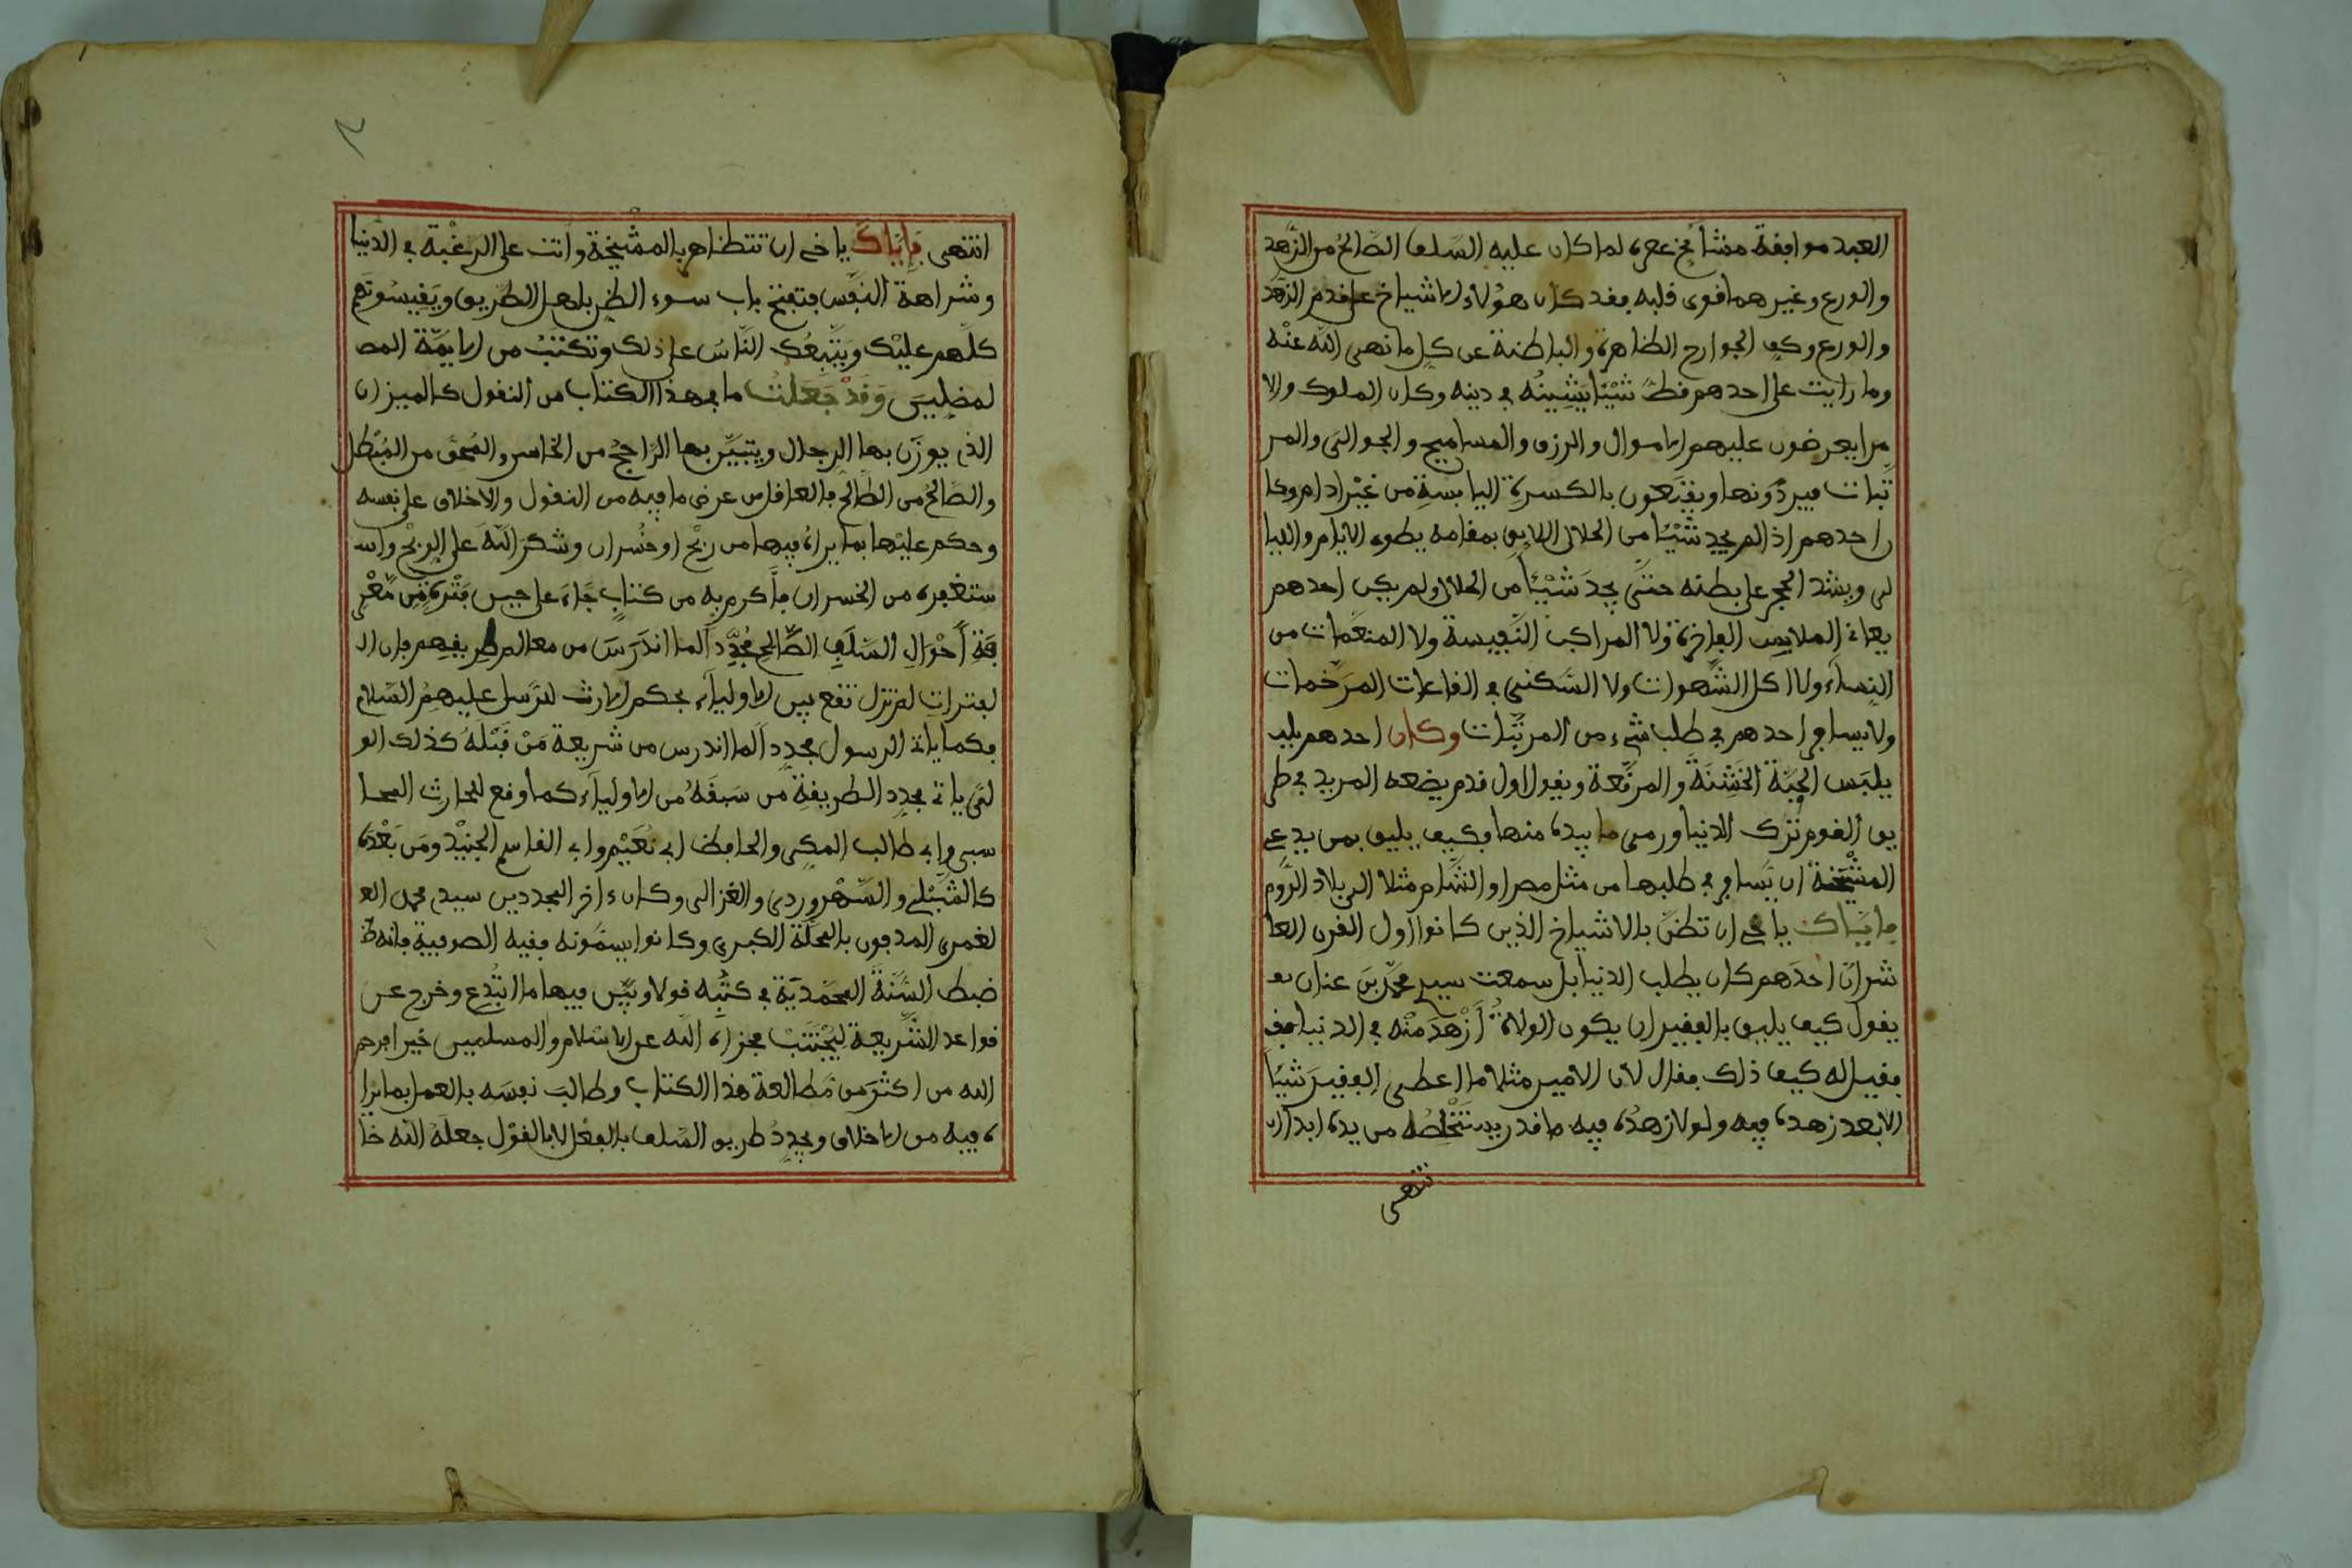 العبد موافقة مشايخ عصره لما كان عليه السلف الصالح من الزهد
والورع وغيرهما قوى قلبه فقد كان هؤلاء الاشياخ على قدم الزهد
والورع وكف الجوارح الظاهرة والباطنة عن كل ما نهى الله عنه
وما رايت على احدهم قط شيئا يشينه في دينه وكان الملوك والا
مرا يعرضون عليهم الاموال والرزق والمساميح والجوالي والمر
تبات فيردونها ويقنعون بالكسرة اليابسة من غير ادام وكا
ن احدهم اذا لم يجد شيئا من الحلال اللايق بمقامه يطوي الايام والليا
لي ويشد الحجر على بطنه حتى يجد شيئا من الحلال ولم يكن احدهم
يعاني الملابس الفاخرة ولا المراكب النفيسة ولا المنعمات من
النساء ولا اكل الشهوات ولا السكنى في القاعات المرخمات
ولا يسافر احدهم في طلب شيء من المرتبات وكان احدهم يلب
يلبس الجبة الخشنة والمرقعة ويقول اول قدم يضعه المريد في طر
يق القوم ترك الدنيا ورمى ما بيده منها فكيف يليق بمن يدعي
المشيخة ان يسافر في طلبها من مثل مصر او الشام مثلا الى بلاد الروم
فاياك يا اخي ان تظن بالاشياخ الذين كانوا اول القرن العا
شر ان احدهم كان يطلب الدنيا بل سمعت سيدي محمد بن عنان
يقول كيف يليق بالفقير ان يكون الولاة ازهد منه في الدنيا
فقيل له كيف ذلك فقال لان الامير مثلا ما اعطى الفقير شيئا
الا بعد زهده فيه ولولا زهده فيه ما قدر يستخلصه من يده ابدا ان
نتهى
٢
انتهى فاياك يا خي ان تتظاهر بالمشيخة وانت على الرغبة في الدنيا
وشراهة النفس فتفتح باب سوء الظن باهل الطريق ويقيسونهم
كلهم عليك ويتبعك الناس على ذلك وتكتب من الايمة المض
لمضلين وقد جعلت ما في هذا الكتاب من النقول كالميزان
الذي يوزن بها الرجال ويتبين بها الراجح من الخاسر والمحق من المبطل
والصالح من الطالح فالعاقل من عرض ما فيه من النقول والاخلاق على نفسه
وحكم عليها بما يراه فيها من ربح او خسران وشكر الله على الربح واس
ستغفره من الخسران فاكرم به من كتاب جاء على حين فترة من معر
فة احوال السلف الصالح مجددا لما اندرس من معالم طريقهم فان ا
لفترات لم تزل تقع بين الاولياء بحكم الارث للرسل عليهم السلام
فكما ياتي الرسول مجددا لما اندرس من شريعة من قبله كذلك الو
لي ياتي يجدد الطريقة من سبقه من الاولياء كما وقع للحارث المحا
سبي وابي طالب المكي والحافظ ابي نعيم وابي القاسم الجنيد ومن بعده
كالشبلي والسهروردي والغزالي وكان ءاخر المجددين سيدي محمد الغ
لغمري المدفون بالمحلة الكبرى وكانوا يسمونه فقيه الصوفية فانه
ضبط السنة المحمدية في كتبه قولا وبين فيها ما ابتدع وخرج عن
قواعد الشريعة ليجتنب فجزاه الله عن الاسلام والمسلمين خيرا فرحم
الله من اكثر من مطالعة هذا الكتاب وطالب نفسه بالعمل بما يرا
ه فيه من الاخلاق ويجدد طريق السلف بالفعل لا بالقول جعله الله خا